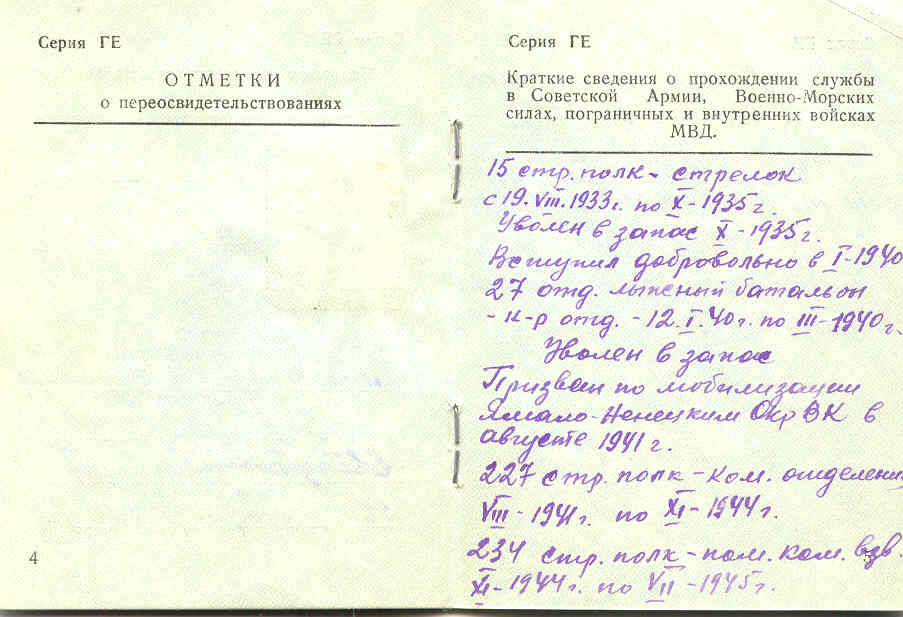 Серия ГЕ
ОТМЕТКИ
о переосвидетельствованиях
4
Серия ГЕ
Краткие сведения о прохождении службы
в Советской Армии, Военно-Морских
силах, пограничных и внутренних войсках
МВД.
15 стр. полк - стрелок
с 19.VIII.1933г. по X-1935г.
Уволен в запас X-1935г.
Вступил добровольно в I-1940
27 отд. лыжный батальон
- к-р отд. - 12.I.40г. по III-1940г.
Уволен в запас
Призван по мобилизации
Ямало-Ненецким Окр ВК в
августе 1941 г.
227 стр. полк - ком. отделени
VIII-1941г. по XI-1944г.
234 стр. полк - пом. ком. взв.
XI-1944г. по VII-1945г.